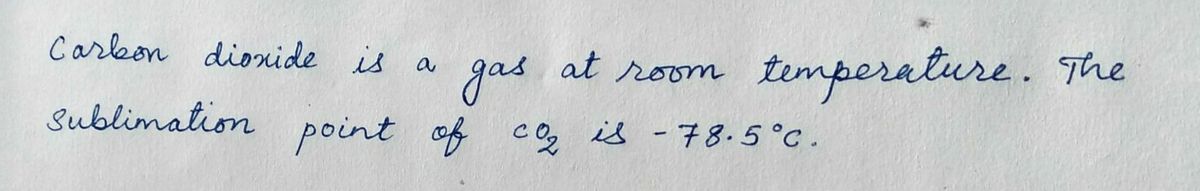 Carbon dioxide is a gas at room temperature. The
sublimation point of CO₂ is -78.5°C.